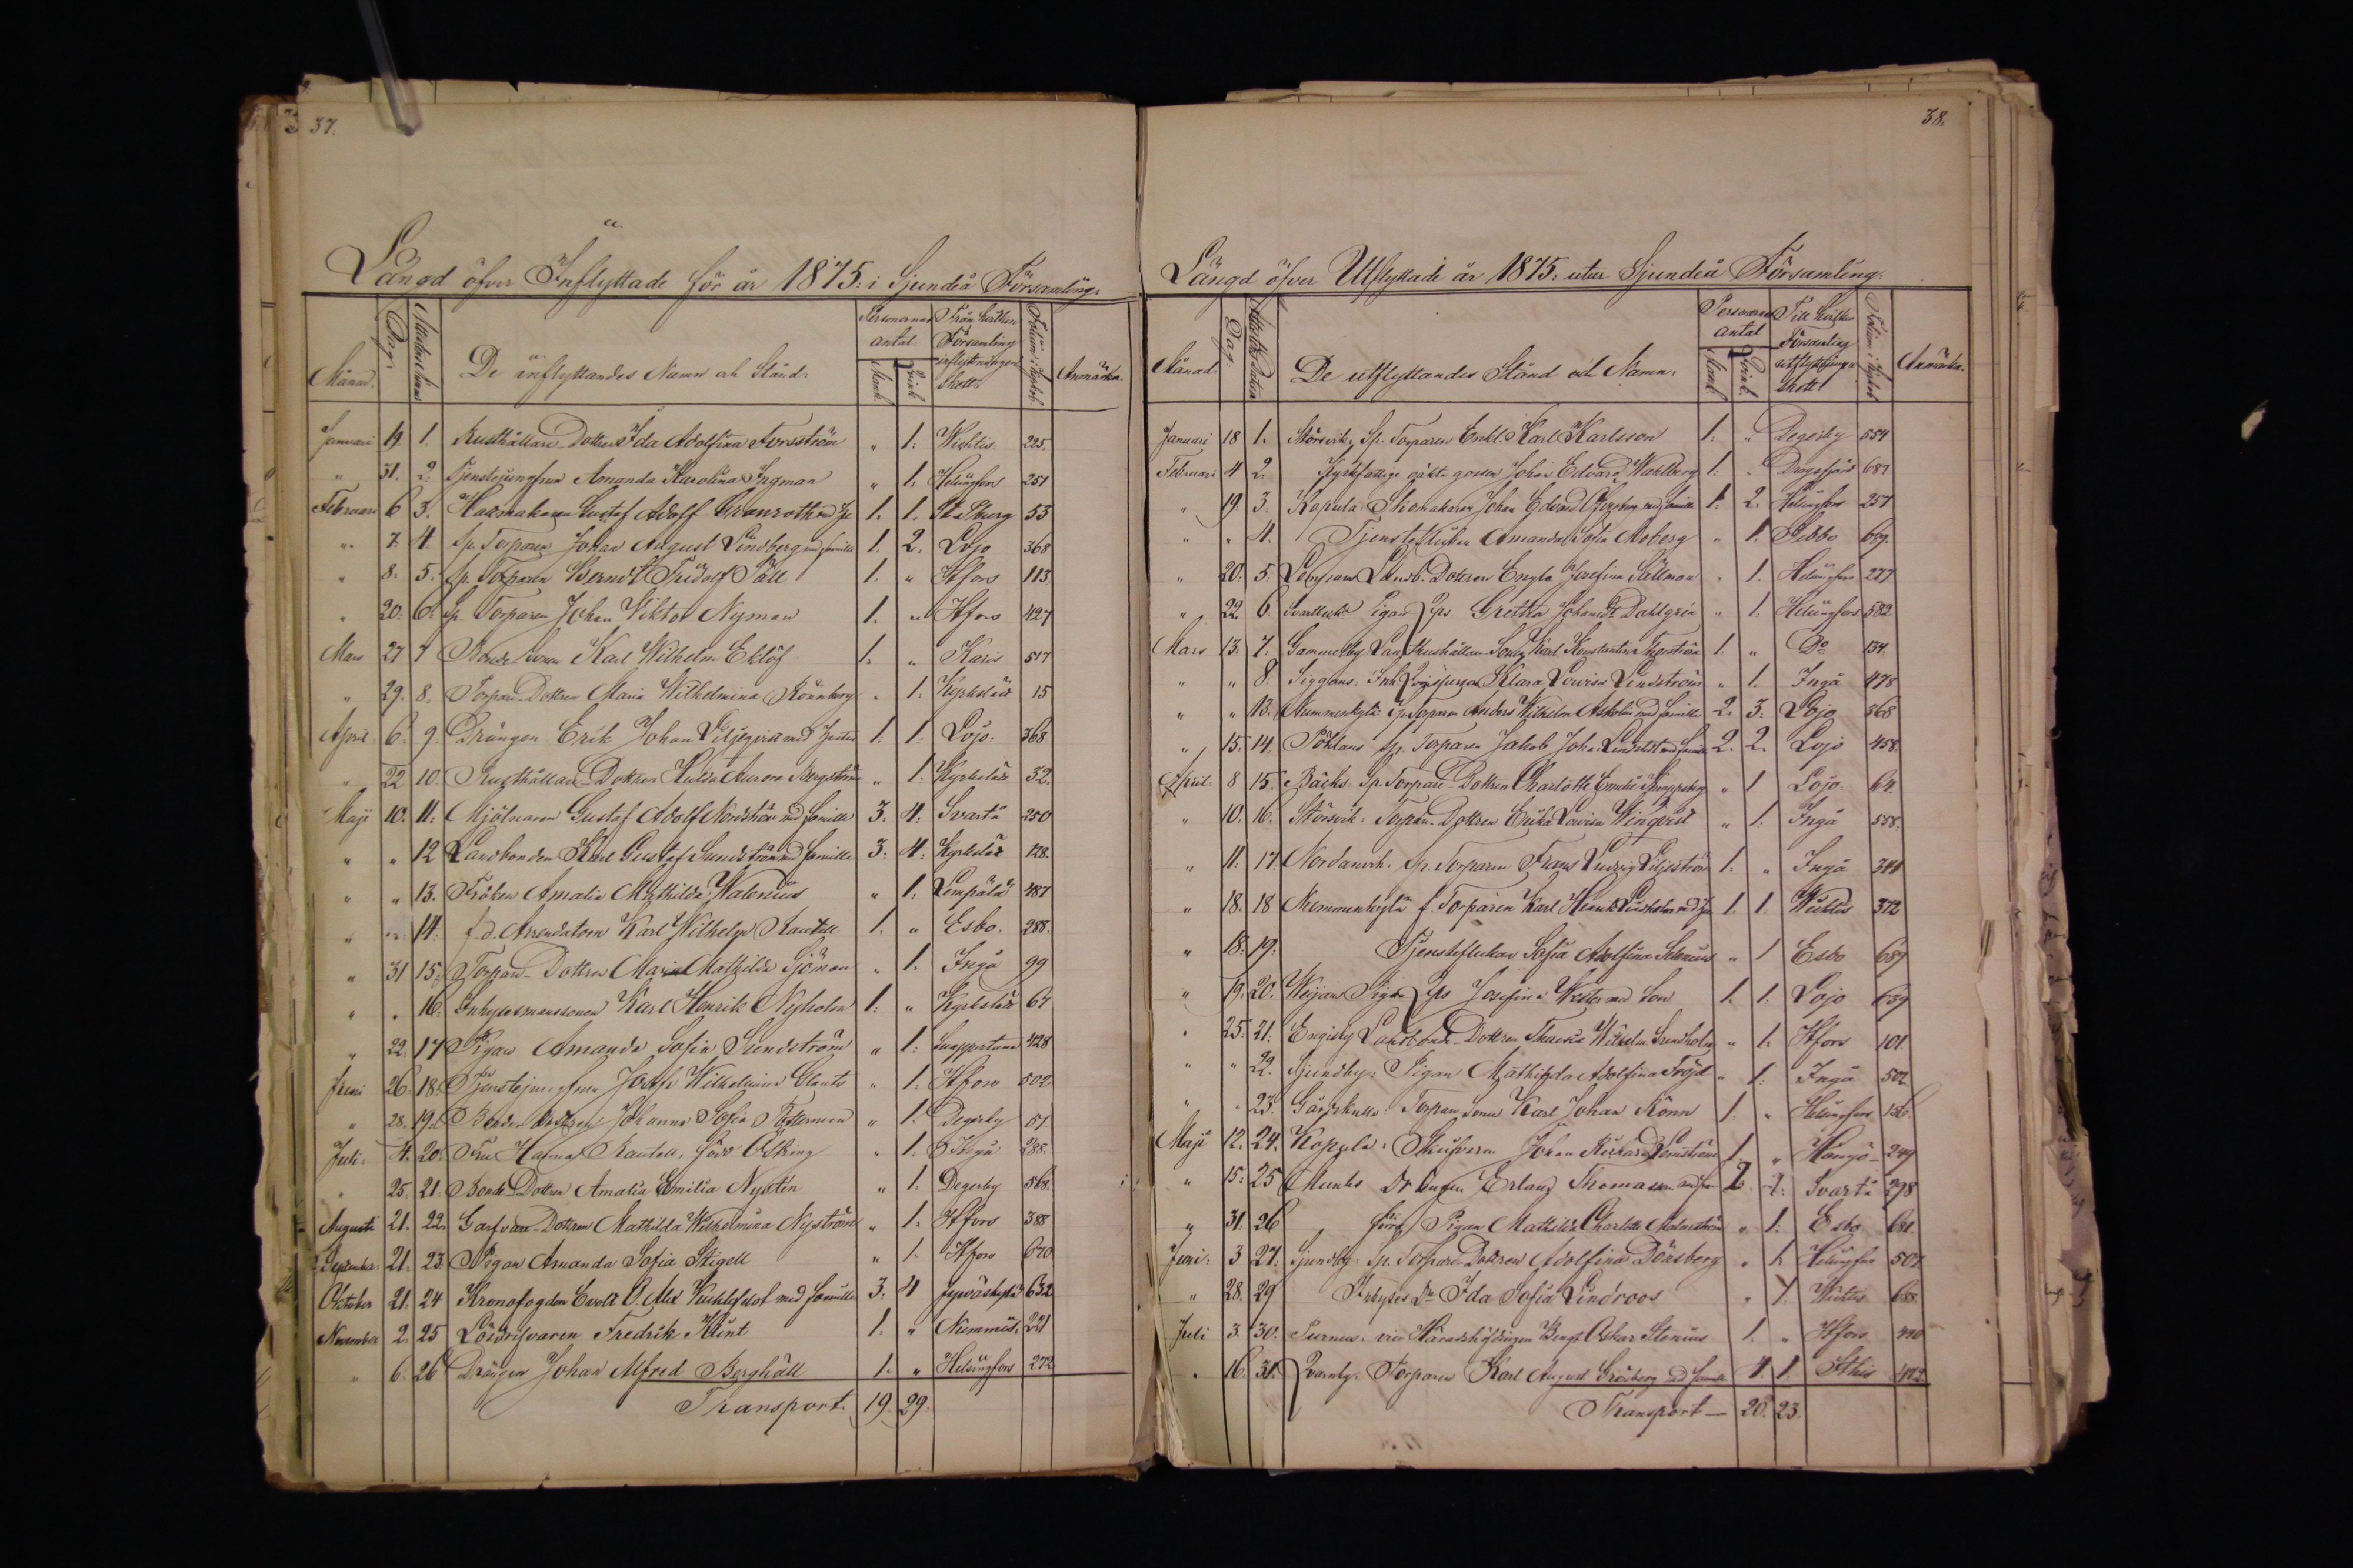 37.
Längd öfver Inflyttade för år 1875. i Sjundeå Församling.
Månad. Dag. De inflyttandes Namn och Stånd. Personernas antal. Mank. Qvink. Från hvilken Församling inflyttningen skett. Folium i Anmärkn.
Januari 19 1. Rusthållare Dottren Ida Adolfina Forsström " 1. Wichtis. 225.
" 31. 2. Tjenstejungfrun Amanda Karolina Ingman " 1. Helsingfors 251
Februari 6 3. Gustaf Adolf Granroth 1. 1. 53
" 7. 4. Sp. Torparen Johan August Lindberg med familie 1. 2. Lojo 368
" 8. 5. Sp. Torparen Berndt Fridolf Päll 1. " Hfors 113.
" 20. 6. Sp. Torparen Johan Viktor Nyman 1. " Hfors 427
Mars 27 7 Bonde Sonen Karl Wilhelm Eklöf 1. " Karis 517
" 29. 8. Torpare Dottren Maria Wilhelmina Rönnberg " 1. Kyrkslät 15
April 6. 9. Drängen Erik Johan Liljeqvist med 1. 1. Lojo. 368
" 22 10 Rusthållare Dottren Hulda Aurora Bergström " 1. Kyrkslät 32.
Maji 10. 11. Mjölnaren Gustaf Adolf Nordström med familie 3. 4. Svartå 250
" " 12 Landbonden Karl Gustaf Sundström med familie 3. 4. Kyrkslät 128.
" " 13. Fröken Amalia Mathilda Walenius " 1. Lempälä 487
" " 14. f.d. Arrendatorn Karl Wilhelm Rautell 1. " Esbo. 288.
" 31 15. Torpare Dottren Maria Mathilda Sjöman " 1. Ingå 99
" " 16. Inhysesmanssonen Karl Henrik Nyholm 1. " Kyrkslät 67
" 22. 17 Pigan Amanda Sofia Sundström " 1. Snappertuna 428
Juni 26. 18. Tjenstejungfrun Josefa Wilhelmina " 1. Hfors 502
" 28. 19. Bonde dottren Johanna Sofia " 1. Degerby 51
Juli 4. 20. Fru Rautell, född " 1. Ingå 288.
" 25. 21. Bonde Dottren Amalia Emilia Nystén " 1. Degerby 568.
Augusti 21. 22. Dottren Mathilda Wilhelmina Nyström " 1. Hfors 388
September 21. 23. Pigan Amanda Sofia Stigell " 1. Hfors 670
Oktober 21. 24 Kronofogden med familie 3. 4 Jyväskylä 632
November 2. 25 Lösdrifvaren Fredrik Klint 1. " Nummis. 221
" 6. 26 Drängen Johan Alfred Berghäll 1. " Helsingfors 272
Transport. 19. 29.
38.
Längd öfver Utflyttade år 1875. utur Sjundeå Församling.
Månad. Dag. De utflyttandes Stånd och Namn. Personernas antal Mank. Qvink. Till hvilken Församling utflyttningen skett Folium i Anmärkn.
Januari 18 1. Störsvik, Sp. Torparen Enkl. Karl Karlsson 1. " Degerby 554
Februari 4 2. gossen Johan Edvard Wahlberg 1. " 687
" 19. 3. Kopula. Skomakaren Johan Edvard med familie 1. 2. Helsingfors 257
" " 4. Tjensteflickan Amanda Sofia Moberg " 1. Sibbo 689.
" 20. 5. Dottren Engla Josefina Sällman " 1. Helsingfors 277
" 22. 6. Svartbäck Pigan Gretha Johansdr Dahlgrén " 1. Helsingfors 582
Mars 13. 7. Gammelby Rusthållare Son Karl Konstantin 1. " Do 134.
" " 8. Siggans. Klara Lovisa Lindström " 1. Ingå 478
" " 13. Nummenkylä Sp. Torparen Anders Wilhelm Askolin med familie 2. 3. Lojo 368
" 15. 14. Pöhlans Sp. Torparen Jakob Joh. 2. 2. Lojo 458.
April 8 15. Bäcks Sp. Torpare Dottren Charlotte Emilie " 1 Lojo 64.
" 10. 16. Störsvik. Torpare Dottren Erika Lovisa Winqvist " 1. Ingå 558.
" 11. 17. Nordanvik. Sp. Torparen Frans Ludvig Liljeström 1. " Ingå
" 18. 18 Nummenkylä f. Torparen Karl Henrik 1. 1. Wichtis 372
" 18. 19. Tjensteflickan Sofia Adolfina " 1 Esbo 689
" 19. 20. Pigan Josefina med Son 1. 1. Lojo 639
" 25. 21. Engisby Landbonde Dottren " 1. Hfors 101
" " 22. Sjundby. Pigan Mathilda Adolfina Fröjd " 1. Ingå 502
" " 23. Torpare Sonen Karl Johan Rönn 1. " Helsingfors 156.
Maji 12. 24. Koppla. Johan Rickard 1. " Hangö 249
" 15. 25 Munks Drängen Erland Thomasson 2. 2. Svartå 298
" 31. 26 Pigan Mathilda Charlotta Malmström " 1. Esbo 681.
Juni 3 27. Sjundby. Sp. Torpare Dottren Adolfina Dönsberg " 1. Helsingfors 507
" 28. 29 Inhyses Dr Ida Sofia Lindroos " 1. Wichtis 688.
Juli 3. 30. Purnus. vice Häradshöfdingen Bengt Oskar Stenius 1. " Hfors
" 16. 31. Qvarnby. Torparen Karl August Grönberg med familie 4. 1. 472
Transport — 20. 23.